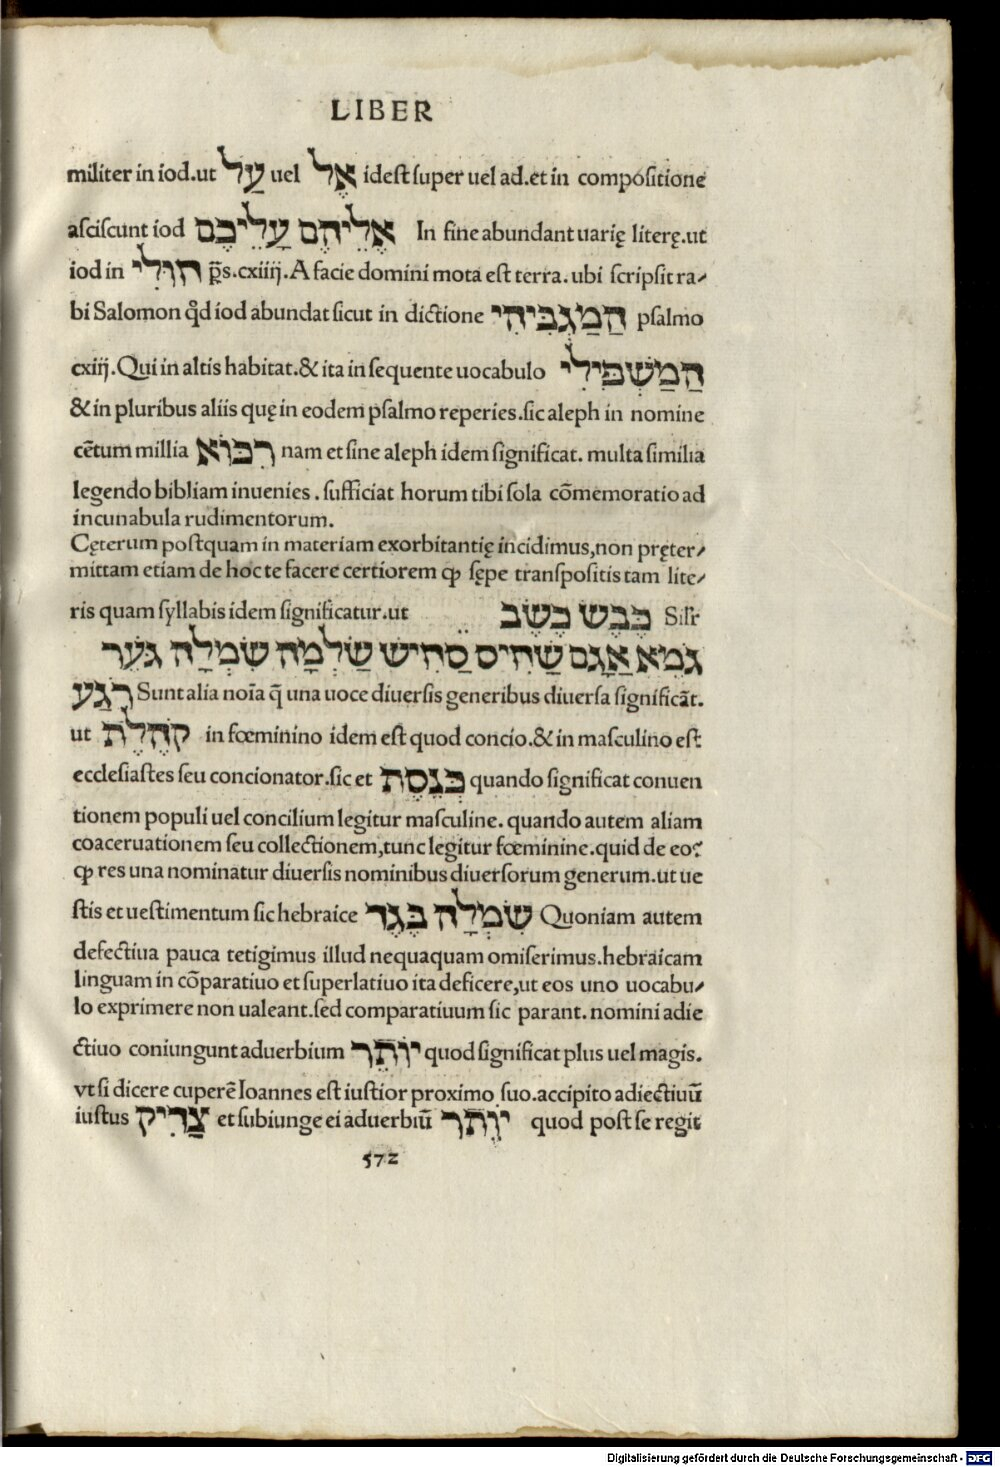 LIBER
militer in iod.ut עַל uel אֶל idest super uel ad.et in compositione
asciscunt iod אֲלֵיהֶם עֲלֵיכֶם In fine abundant uarię literę.ut
iod in חוּלִי p̄s.cxiiij.A facie domini mota est terra.ubi scripsit ra-
bi Salomon qd̄ iod abundat sicut in dictione הַמַגְבִּיהִי psalmo
cxiij.Qui in altis habitat.& ita in sequente uocabulo הַמַשְׁפִּילִי
& in pluribus aliis quę in eodem psalmo reperies.sic aleph in nomine
cētum millia רִבּוֹא nam et sine aleph idem significat. multa similia
legendo bibliam inuenies . sufficiat horum tibi sola cōmemoratio ad
incunabula rudimentorum.
Cęterum postquam in materiam exorbitantię incidimus,non pręter-
mittam etiam de hoc te facere certiorem ꝙ sępe transpositis tam lite-
ris quam syllabis idem significatur.ut כֶּבֶשׂ כֶּשֶׂב Silr
גֹּמֶא אֲגַם שָׁחִיס סָחִישׁ שַׂלְמָה שִׂמְלָה גֹּעֵר
רֹגַע Sunt alia noīa q̄ una uoce diuersis generibus diuersa significāt.
ut קֹהֶלֶת in fœminino idem est quod concio.& in masculino est
ecclesiastes seu concionator.sic et כְּנֶסֶת quando significat conuen
tionem populi uel concilium legitur masculine. quando autem aliam
coaceruationem seu collectionem,tunc legitur fœminine.quid de eo?
ꝙ res una nominatur diuersis nominibus diuersorum generum.ut ue
stis et uestimentum sic hebraice שִׂמְלָה בֶּגֶד Quoniam autem
defectiua pauca tetigimus illud nequaquam omiserimus.hebraicam
linguam in cōparatiuo et superlatiuo ita deficere,ut eos uno uocabu-
lo exprimere non ualeant.sed comparatiuum sic parant. nomini adie
ctiuo coniungunt aduerbium יוֹתֵר quod significat plus uel magis.
vt si dicere cuperē Ioannes est iustior proximo suo.accipito adiectiuū
iustus צַדִּיק et subiunge ei aduerbiū יוֹתֵר quod post se regit
572
Digitalisierung gefördert durch die Deutsche Forschungsgemeinschaft - DFG